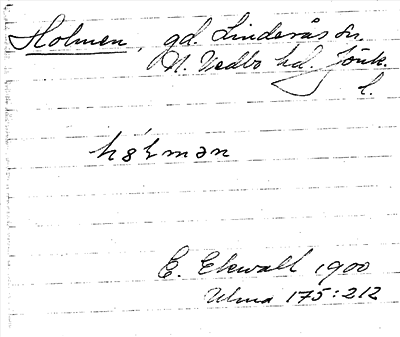 Holmen, gd. Linderås sn.
N. Vedbo hd. Jönk.
l.
E. Ekwall 1900
Ulma 175:212